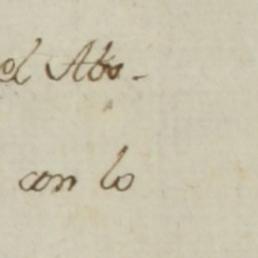 el Abo-
con lo